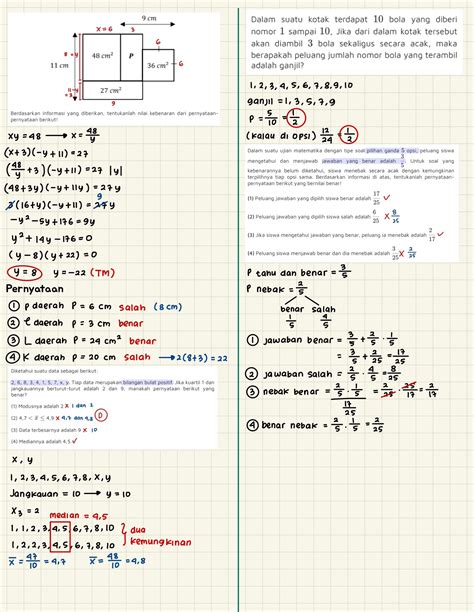 9 cm
x=6
3
6
8 = y
48 cm²
P
36 cm²
6
11 cm
11-y
3
27 cm²
9
Berdasarkan informasi yang diberikan, tentukanlah nilai kebenaran dari pernyataan-
pernyataan berikut!
xy = 48 → x = 48/y
(x+3)(-y+11) = 27
(48/y + 3)(-y+11) = 27 |y|
(48+3y)(-y+11) = 27y
3(16+y)(-y+11) = 27y 9
-y²-5y+176 = 9y
y²+14y-176 = 0
(y-8)(y+22) = 0
y = 8 y = -22 (TM)
Pernyataan
1 p daerah P = 6 cm salah (8 cm)
2 l daerah P = 3 cm benar
3 L daerah P = 24 cm² benar
4 K daerah P = 20 cm salah → 2(8+3) = 22
Diketahui suatu data sebagai berikut:
2, 6, 8, 3, 4, 1, 5, 7, x, y. Tiap data merupakan bilangan bulat positif. Jika kuartil 1 dan
jangkauannya berturut-turut adalah 2 dan 9, manakah pernyataan berikut yang
benar?
(1) Modusnya adalah 2 X 1 dan 2
(2) 4,7 < x̄ ≤ 4,9 X 4,7 dan 4,8 D
(3) Data terbesarnya adalah 9 X 10
(4) Mediannya adalah 4,5 ✓
x, y
1, 2, 3, 4, 5, 6, 7, 8, x, y
Jangkauan = 10 → y = 10
X₃ = 2
median = 4,5
1, 1, 2, 3, 4, 5, 6, 7, 8, 10
dua
kemungkinan
1, 2, 2, 3, 4, 5, 6, 7, 8, 10
x̄ = 47/10 = 4,7 x̄ = 48/10 = 4,8
Dalam suatu kotak terdapat 10 bola yang diberi
nomor 1 sampai 10. Jika dari dalam kotak tersebut
akan diambil 3 bola sekaligus secara acak, maka
berapakah peluang jumlah nomor bola yang terambil
adalah ganjil?
1, 2, 3, 4, 5, 6, 7, 8, 9, 10
ganjil = 1, 3, 5, 7, 9
P = 5/10 = 1/2
(kalau di opsi) 12/24 = 1/2
Dalam suatu ujian matematika dengan tipe soal pilihan ganda 5 opsi, peluang siswa
mengetahui dan menjawab jawaban yang benar adalah 3/5. Untuk soal yang
kebenarannya belum diketahui, siswa menebak secara acak dengan kemungkinan
terpilihnya tiap opsi sama. Berdasarkan informasi di atas, tentukanlah pernyataan-
pernyataan berikut yang bernilai benar!
(1) Peluang jawaban yang dipilih siswa benar adalah 17/25 ✓
(2) Peluang jawaban yang dipilih siswa salah adalah 6/25 X 8/25
(3) Jika siswa mengetahui jawaban yang benar, peluang ia menebak adalah 2/17 ✓
(4) Peluang siswa menjawab benar dan dia menebak adalah 3/25 X 2/25
P tahu dan benar = 3/5
P nebak = 2/5
benar salah
1/5 4/5
1 jawaban benar = 3/5 + 2/5 · 1/5
= 3/5 + 2/25 = 17/25
2 jawaban salah = 2/5 · 4/5 = 8/25
3 nebak benar = 2/5 · 1/5 = 2/25 · 25/17 = 2/17
17/25
4 benar nebak = 2/5 · 1/5 = 2/25